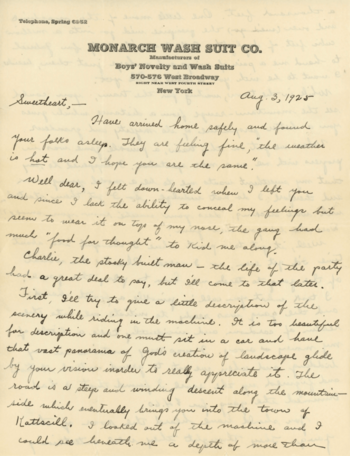 Telephone, Spring 6232
MONARCH WASH SUIT CO.
Manufacturers of
Boys' Novelty and Wash Suits
570-576 West Broadway
RIGHT NEAR WEST FOURTH STREET
New York
Aug 3, 1925
Sweetheart,—
Have arrived home safely and found
your folks asleep. They are feeling fine, "the weather
is hot and I hope you are the same."
Well dear, I felt down-hearted when I left you
and since I lack the ability to conceal my feelings but
seem to wear it on top of my nose, the gang had
much "food for thought" to kid me along.
Charlie, the stocky built man – the life of the party
had a great deal to say, but I'll come to that later.
First, I'll try to give a little description of the
scenery while riding in the machine. It is too beautiful
for description and one must sit in a car and have
that vast panorama of God's creation of landscape glide
by your vision inorder to really appreciate it. The
road is a steep and winding descent along the mountain-
side which eventually brings you into the town of
Kattscill. I looked out of the machine and I
could see beneath me a depth of more than